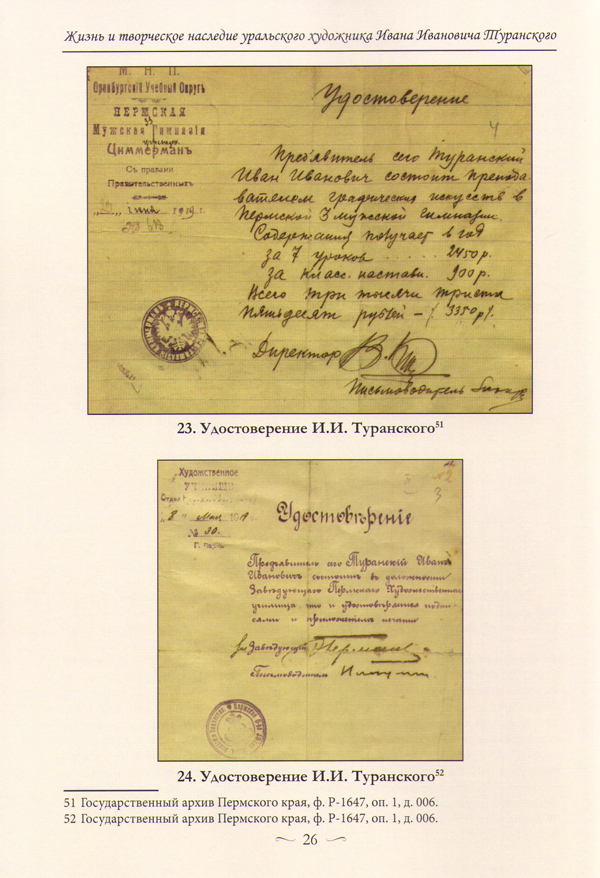 Жизнь и творческое наследие уральского художника Ивана Ивановича Туранского
М. Н. П.
Оренбургскій Учебный Округъ
ПЕРМСКАЯ
Мужская Гимназія
Циммерманъ
Съ правами
Правительственныхъ
1919 г.
Удостоверение
4
Предъявитель сего Туранский
Иван Иванович состоит препода-
вателем графических искусств в
Пермской 3 мужской гимназии.
Содержания получает в год
за 7 уроков ...... 2450 р.
за класс. настави. 900 р.
Всего три тысячи триста
пятьдесят рублей – (3350 р).
Директор
Письмоводитель
23. Удостоверение И.И. Туранского51
Художественное
№ 30.
Г. Пермь
№2
3
Удостовѣреніе
Предъявитель сего Туранскій Иванъ
Ивановичъ состоитъ въ должности
Завѣдующаго Пермскаго Художественнаго
училища что и удостовѣряется подпи-
сями и приложеніемъ печати
Завѣдующій
Письмоводитель
24. Удостоверение И.И. Туранского52
51 Государственный архив Пермского края, ф. Р-1647, оп. 1, д. 006.
52 Государственный архив Пермского края, ф. Р-1647, оп. 1, д. 006.
26